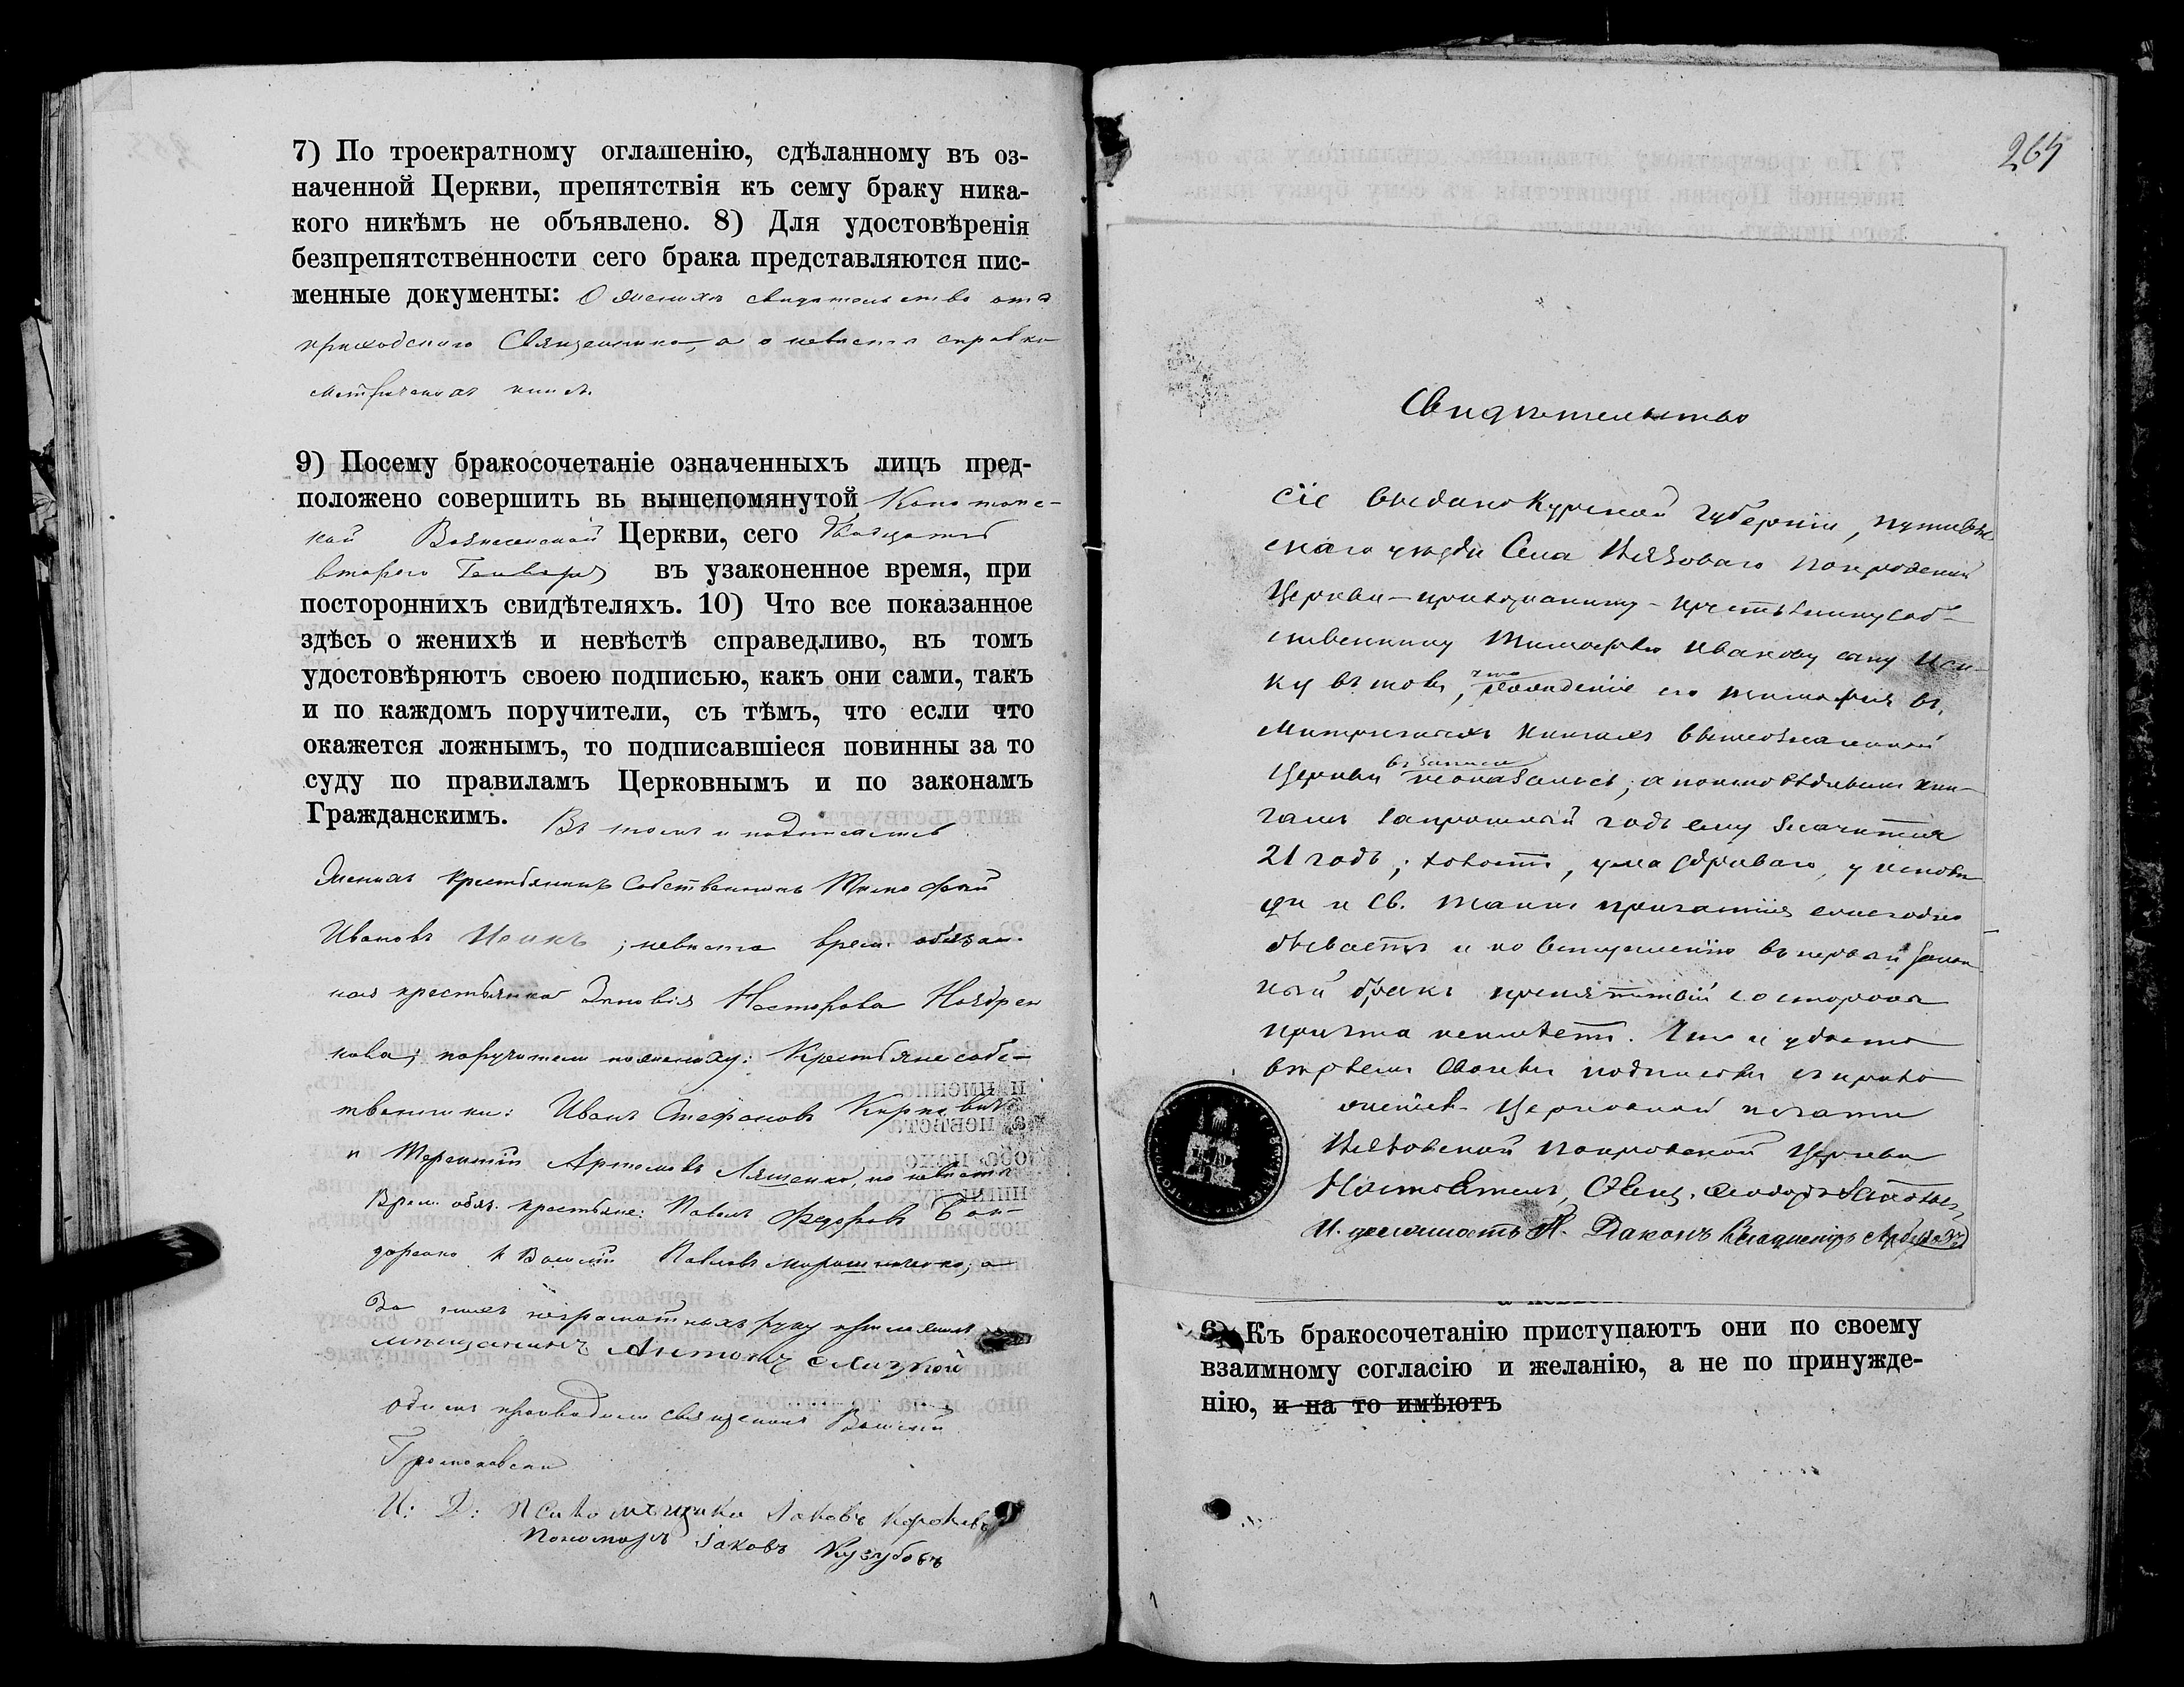 7) По троекратному оглашенію, сдѣланному въ оз-
наченной Церкви, препятствія къ сему браку ника-
кого никѣмъ не объявлено. 8) Для удостовѣренія
безпрепятственности сего брака представляются пис-
менные документы: О женихѣ свидѣтельство отъ
приходскаго Священника, а о невѣстѣ справка
метрическихъ книгъ.
9) Посему бракосочетаніе означенныхъ лицъ пред-
положено совершить вь вышепомянутой Конотопс-
кой Вознесенской Церкви, сего двадцать
второго Генваря въ узаконенное время, при
постороннихъ свидѣтеляхъ. 10) Что все показанное
здѣсь о женихѣ и невѣстѣ справедливо, въ томъ
удостовѣряютъ своею подписью, какъ они сами, такъ
и по каждомъ поручители, съ тѣмъ, что если что
окажется ложнымъ, то подписавшіеся повинны за то
суду по правиламъ Церковнымъ и по законамъ
Гражданскимъ. Въ томъ и подписались
Женихъ крестьянинъ собственникъ Тимофей
Ивановъ Исикъ; невѣста врем. обязан-
ная крестьянка Зиновія Несторова
поручители по женеху: Крестьяне собс-
твенники: Иванъ Стефановъ
и Терентій Ляшенко, по невѣстѣ
Врем. обяз. крестьяне: Павелъ Федоровъ Бон-
даренко и Василій Павловъ Мирошниченко, а
За нихъ неграмотныхъ руку приложилъ
мѣщанинъ Антонъ
обыскъ производили священникъ Василій
И: Д: Псаломщика Іаковъ
Пономарь Іаковъ Кузубовъ
264
Свидѣтельство
Сіе выдано Курской губерніи, путивль-
скаго уѣзда Села Вязоваго Покровской
Церкви прихожанину крестьянину соб-
ственнику Тимофѣю Иванову сыну Иси-
ку въ томъ, что рожденіе его Тимофѣя въ
Метрическихъ Книгахъ вышеозначенной
Церкви въ записи неоказалось, а по исповѣднымъ кни-
гамъ запрошлый годъ ему значится
21 годъ; холостъ, ума здраваго, у исповѣ-
ди и Св. Таинъ причастія ежегодно
бываетъ и ко вступленію въ первый закон-
ный бракъ препятствій со стороны
причта неимѣетъ. Что и удосто-
вѣряемъ своимъ подписомъ съ прило-
женіемъ церковной печати
Вязовской Покровской Церкви
Настоятель, Свящ. Ѳеодоръ
И. должность П. Діаконъ Владиміръ
6) Къ бракосочетанію приступаютъ они по своему
взаимному согласію и желанію, а не по принужде-
нію, и на то имѣютъ